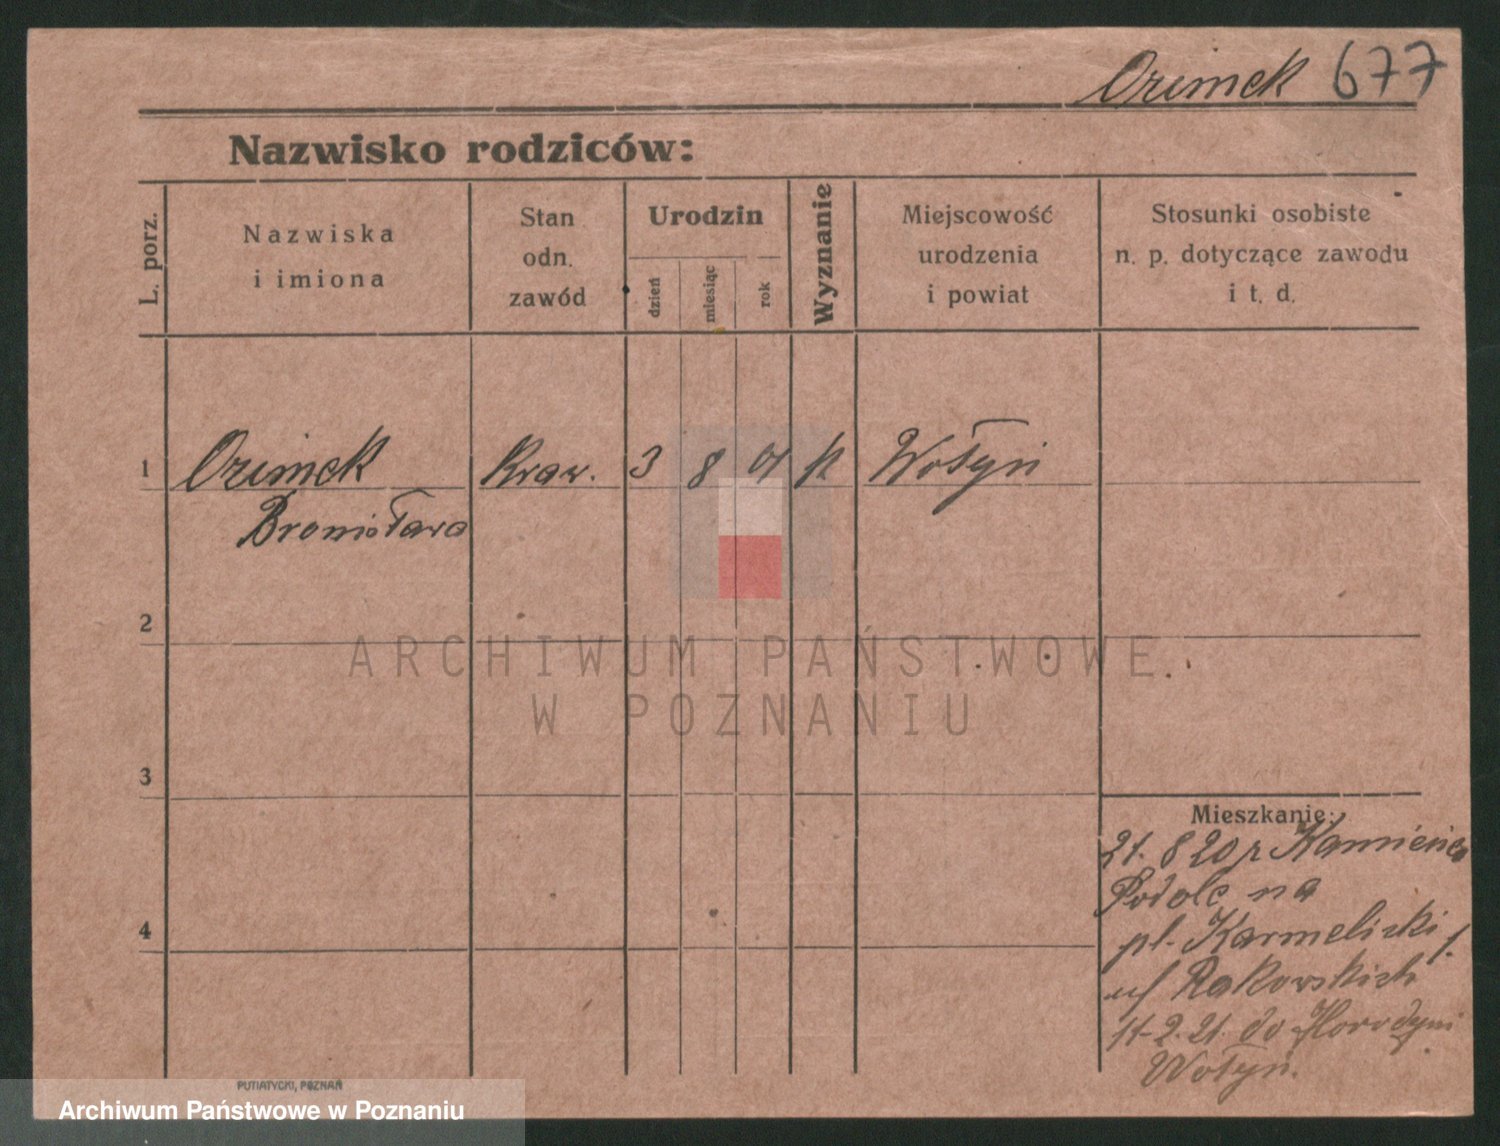 Orimek 677
Nazwisko rodziców:
L. porz.
Nazwiska
i imiona
Stan
odn.
zawód
Urodzin
dzień
miesiąc
rok
Wyznanie
Miejscowość
urodzenia
i powiat
Stosunki osobiste
n. p. dotyczące zawodu
i t. d.
1 Orimek Kraw. 3 8 01 k Wołyń
Bronisława
2
ARCHIWUM PAŃSTWOWE
W POZNANIU
3
Mieszkanie:
21. 8 20 z Kamieńca
Podole na
pl. Karmelicki 1.
u/ Rakowskich
11-2. 21. do Horodyni
Wołyń.
4
PUTIATYCKI, POZNAŃ
Archiwum Państwowe w Poznaniu